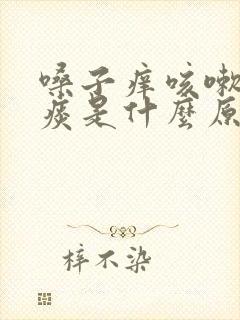 嗓子痒咳嗽
痰是什麼原
梓不染